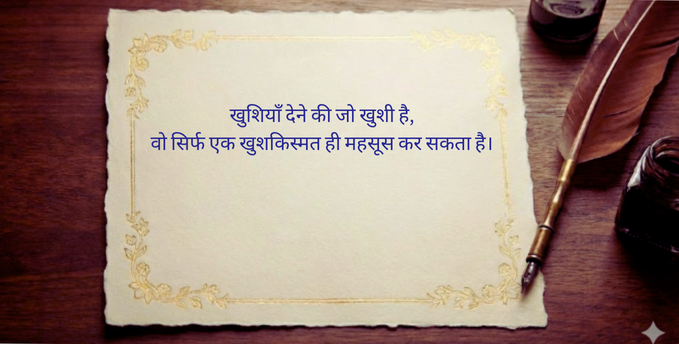 खुशियाँ देने की जो खुशी है,
वो सिर्फ एक खुशकिस्मत ही महसूस कर सकता है।